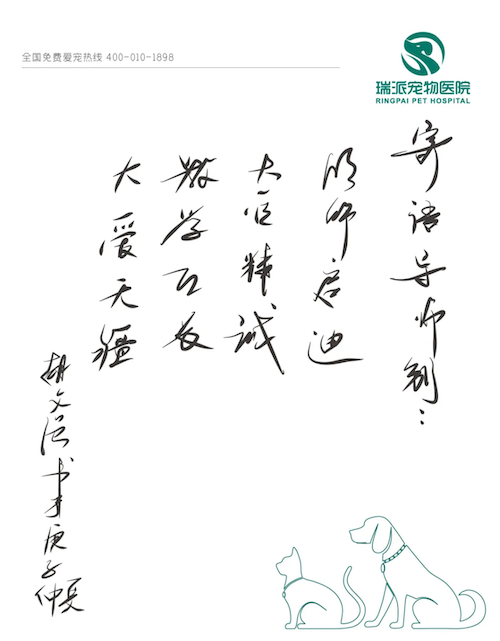 全国免费爱宠热线 400-010-1898
瑞派宠物医院
RINGPAI PET HOSPITAL
寄语导师制：
明师启迪
大医精诚
教学互长
大爱无疆
胡文强书于庚子仲夏